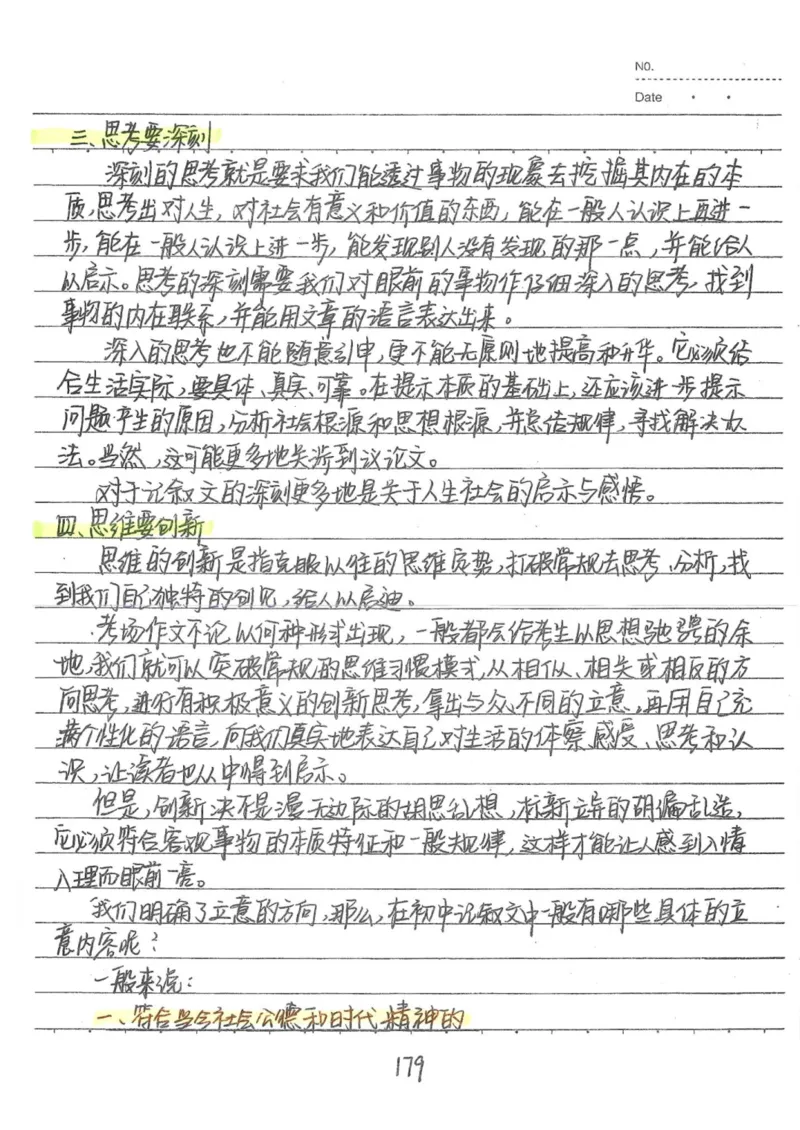 NO.
Date
三、思考要深刻
深刻的思考就是要求我们能透过事物的现象去挖掘其内在的本
质,思考出对人生,对社会有意义和价值的东西,能在一般人认识上再进一
步,能在一般人认识上进一步,能发现别人没有发现的那一点,并能给人
以启示。思考的深刻需要我们对眼前的事物作仔细深入的思考,找到
事物的内在联系,并能用文章的语言表达出来。
深入的思考也不能随意引申,更不能无原则地提高和升华。它必须结
合生活实际,要具体、真实、可靠。在提示本质的基础上,还应该进一步提示
问题产生的原因,分析社会根源和思想根源,并总结规律,寻找解决办
法。当然,这可能更多地失涉到议论文。
对于记叙文的深刻更多地是关于人生社会的启示与感悟。
四、思维要创新
思维的创新是指克服以往的思维定势,打破常规去思考、分析,找
到我们自己独特的创见,给人以启迪。
考场作文不论以何种形式出现,一般都会给考生以思想驰骋的余
地,我们就可以突破常规的思维习惯模式,从相似、相关或相反的方
向思考,进行有积极意义的创新思考,拿出与众不同的立意,再用自己充
满个性化的语言,向我们真实地表达自己对生活的体察、感受、思考和认
识,让读者也从中得到启示。
但是,创新决不是漫无边际的胡思乱想,标新立异的胡编乱造,
它必须符合客观事物的本质特征和一般规律,这样才能让人感到入情
入理而眼前一亮。
我们明确了立意的方向,那么,在初中记叙文中一般有哪些具体的立
意内容呢?
一般来说:
一、符合当今社会公德和时代精神的
179